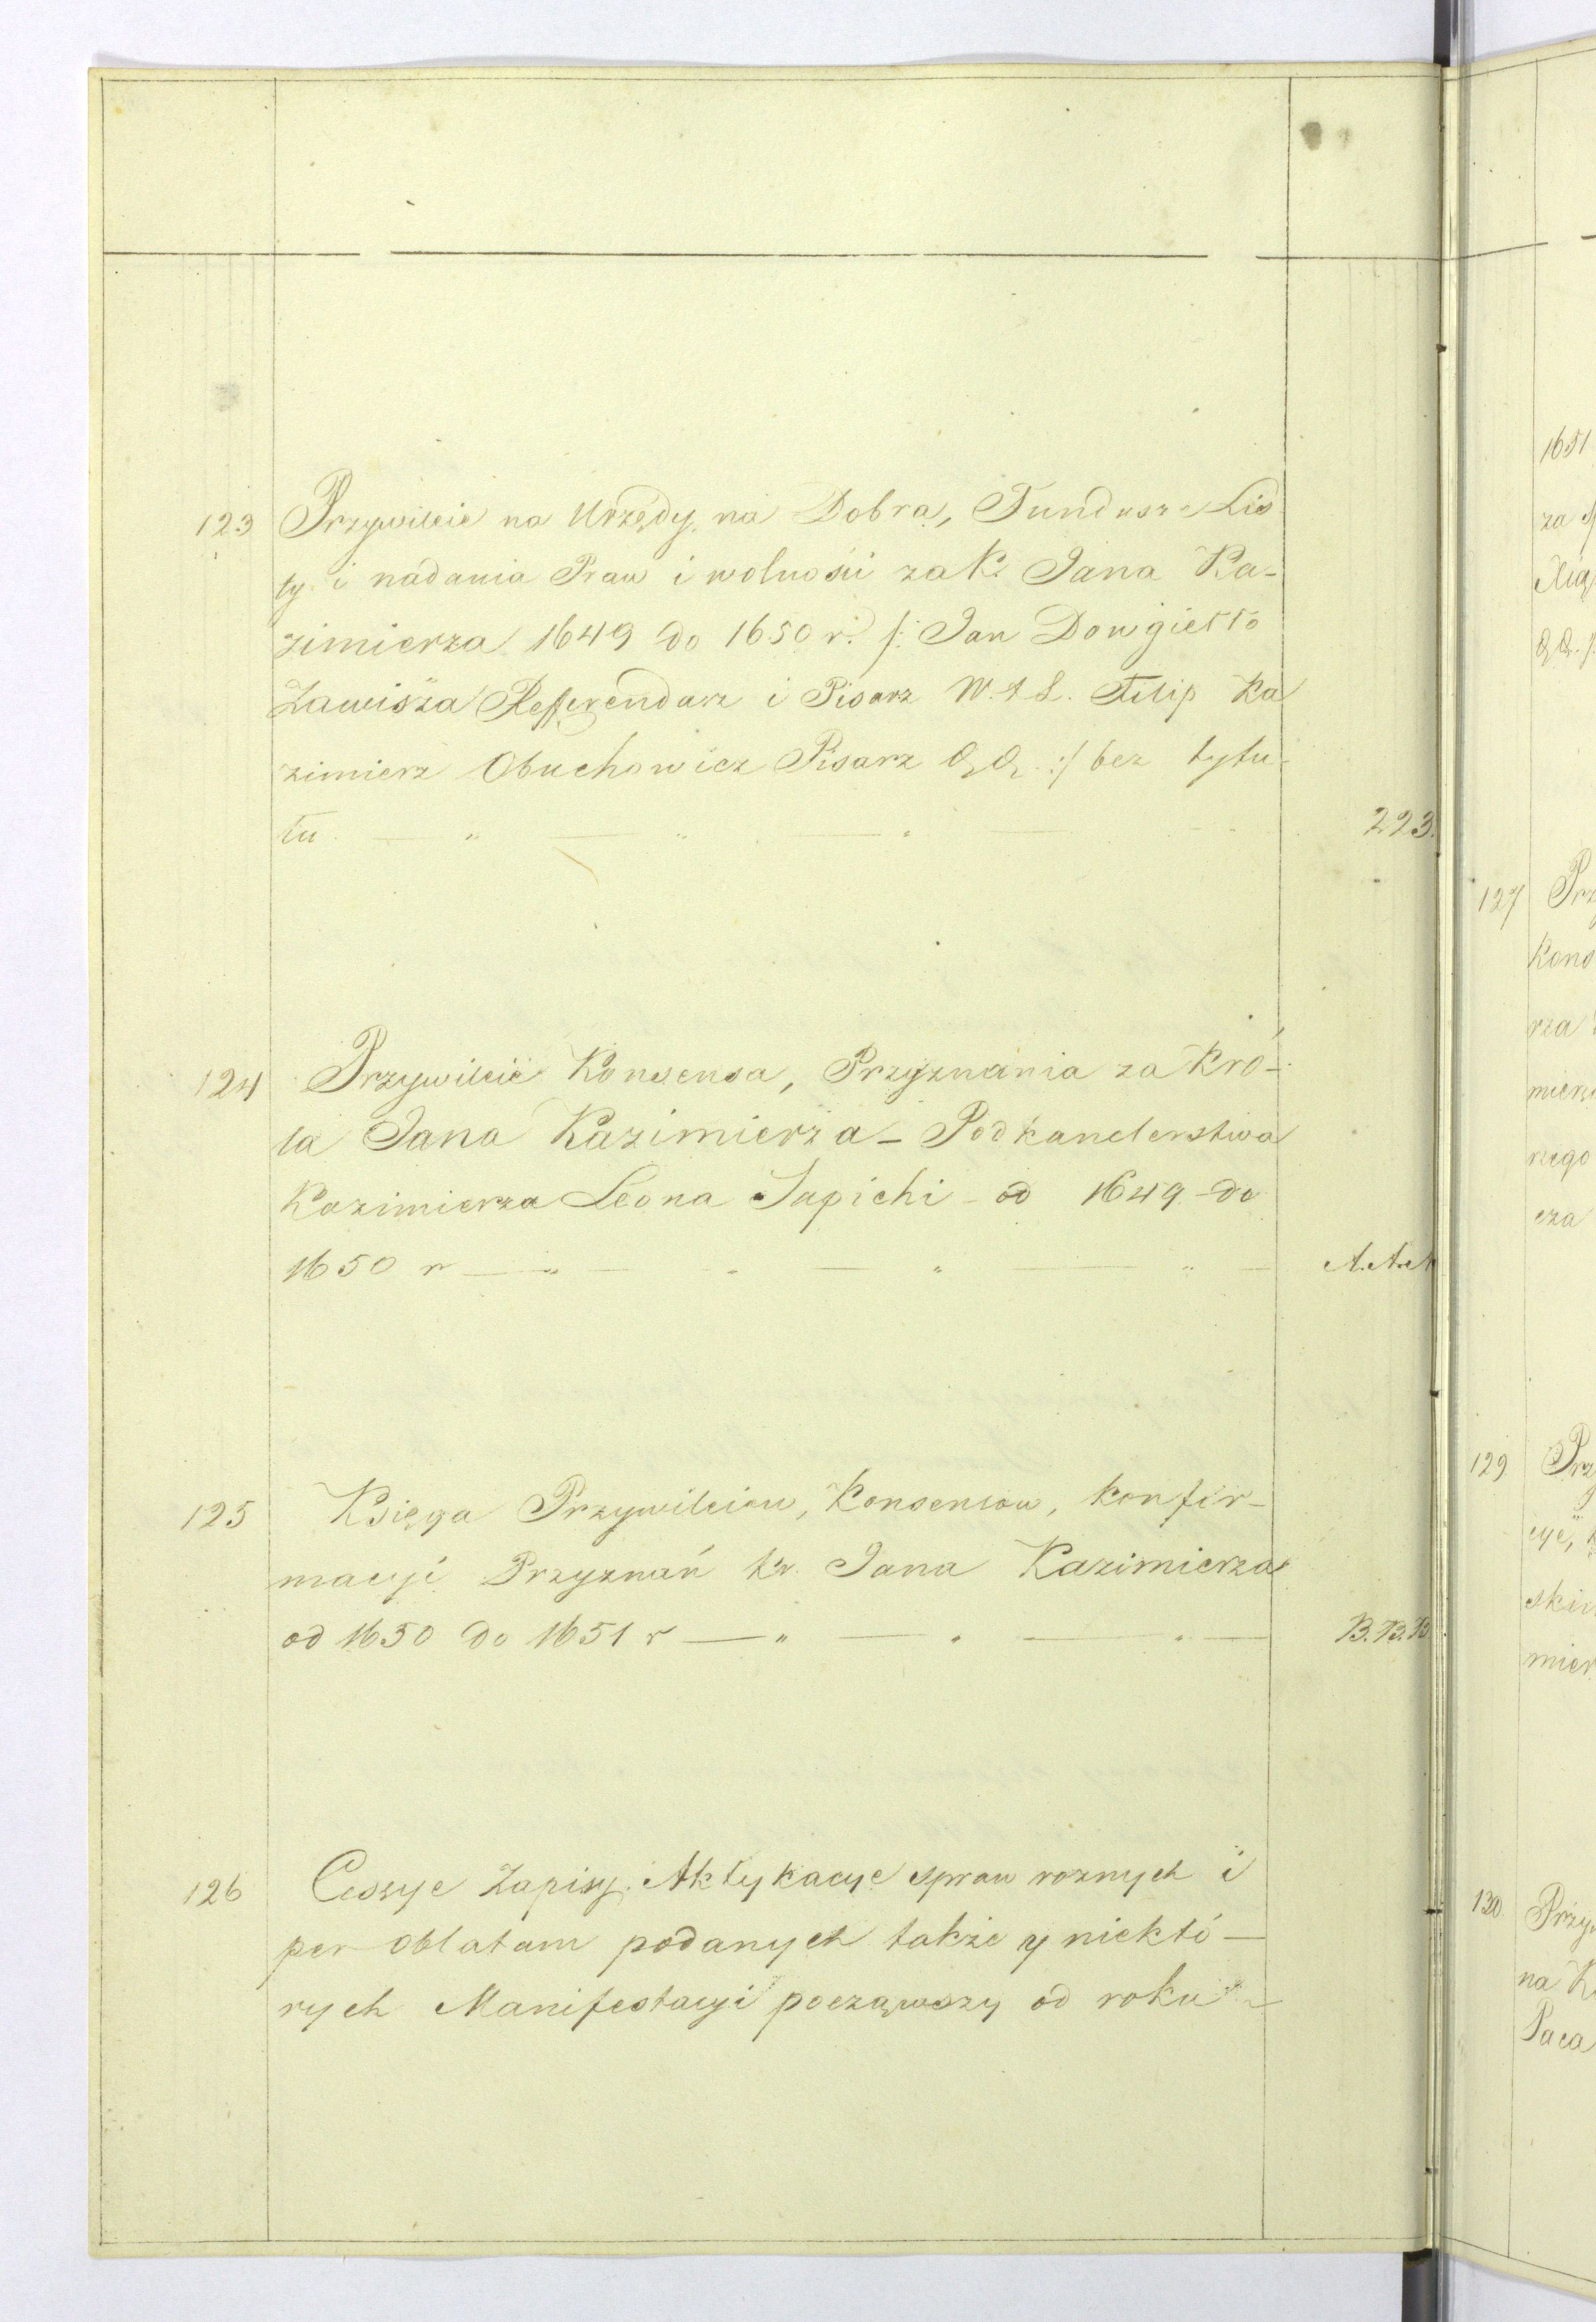 123 Przywileie na Urzędy, na Dobra, Fundusze Lis
ty i nadania Praw i wolności za K. Jana Ka-
zimierza 1649 do 1650 r. /: Jan Dowgiełło
Zawisza Refferendarz i Pisarz W. X L. Filip Ka
zimierz Obuchowicz Pisarz :/ bez tytu-
łu 223.
124 Przywileie Konsensa, Przyznania za Kró-
la Jana Kazimierza - Podkanclerstwa
Kazimierza Leona Sapiehi - od 1649 - do
1650 r A.A.A
125 Księga Przywileiow, Konsensow, konfir-
macyi Przyznań kr. Jana Kazimierza
od 1650 do 1651 r B.B.B
126 Cessye Zapisy. Aktykacye spraw roznych i
per oblatam podanych także y niektó-
rych Manifestacyi począwszy od roku
1651
za
127 Prz
Kons
rza
mierz
rzego
cza
129 Prz
cye,
skie
mier
130. Przy
na K
Paca